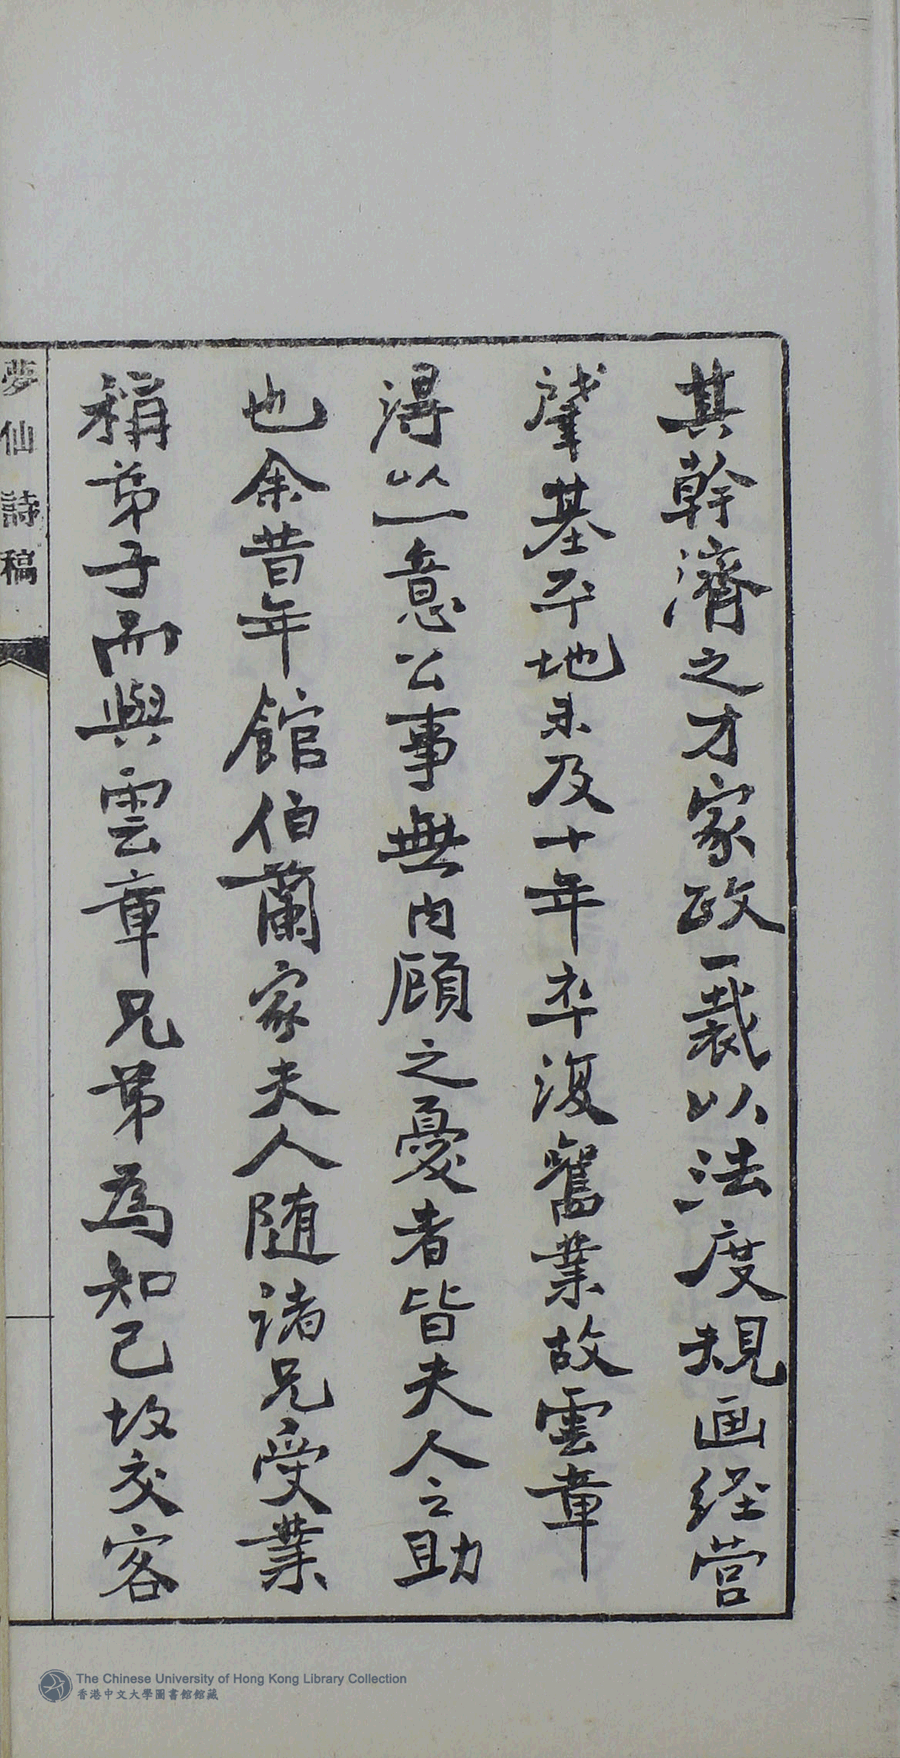 其幹濟之才家政一裁以法度規画経营
肈基平地未及十年卒復舊業故雲章
得以一意公事無内顧之憂者皆夫人之助
也余昔年館伯蘭家夫人随诸兄受業
稱弟子而與雲章兄弟為知己故交客
夢仙詩稿
The Chinese University of Hong Kong Library Collection
香港中文大學圖書館館藏